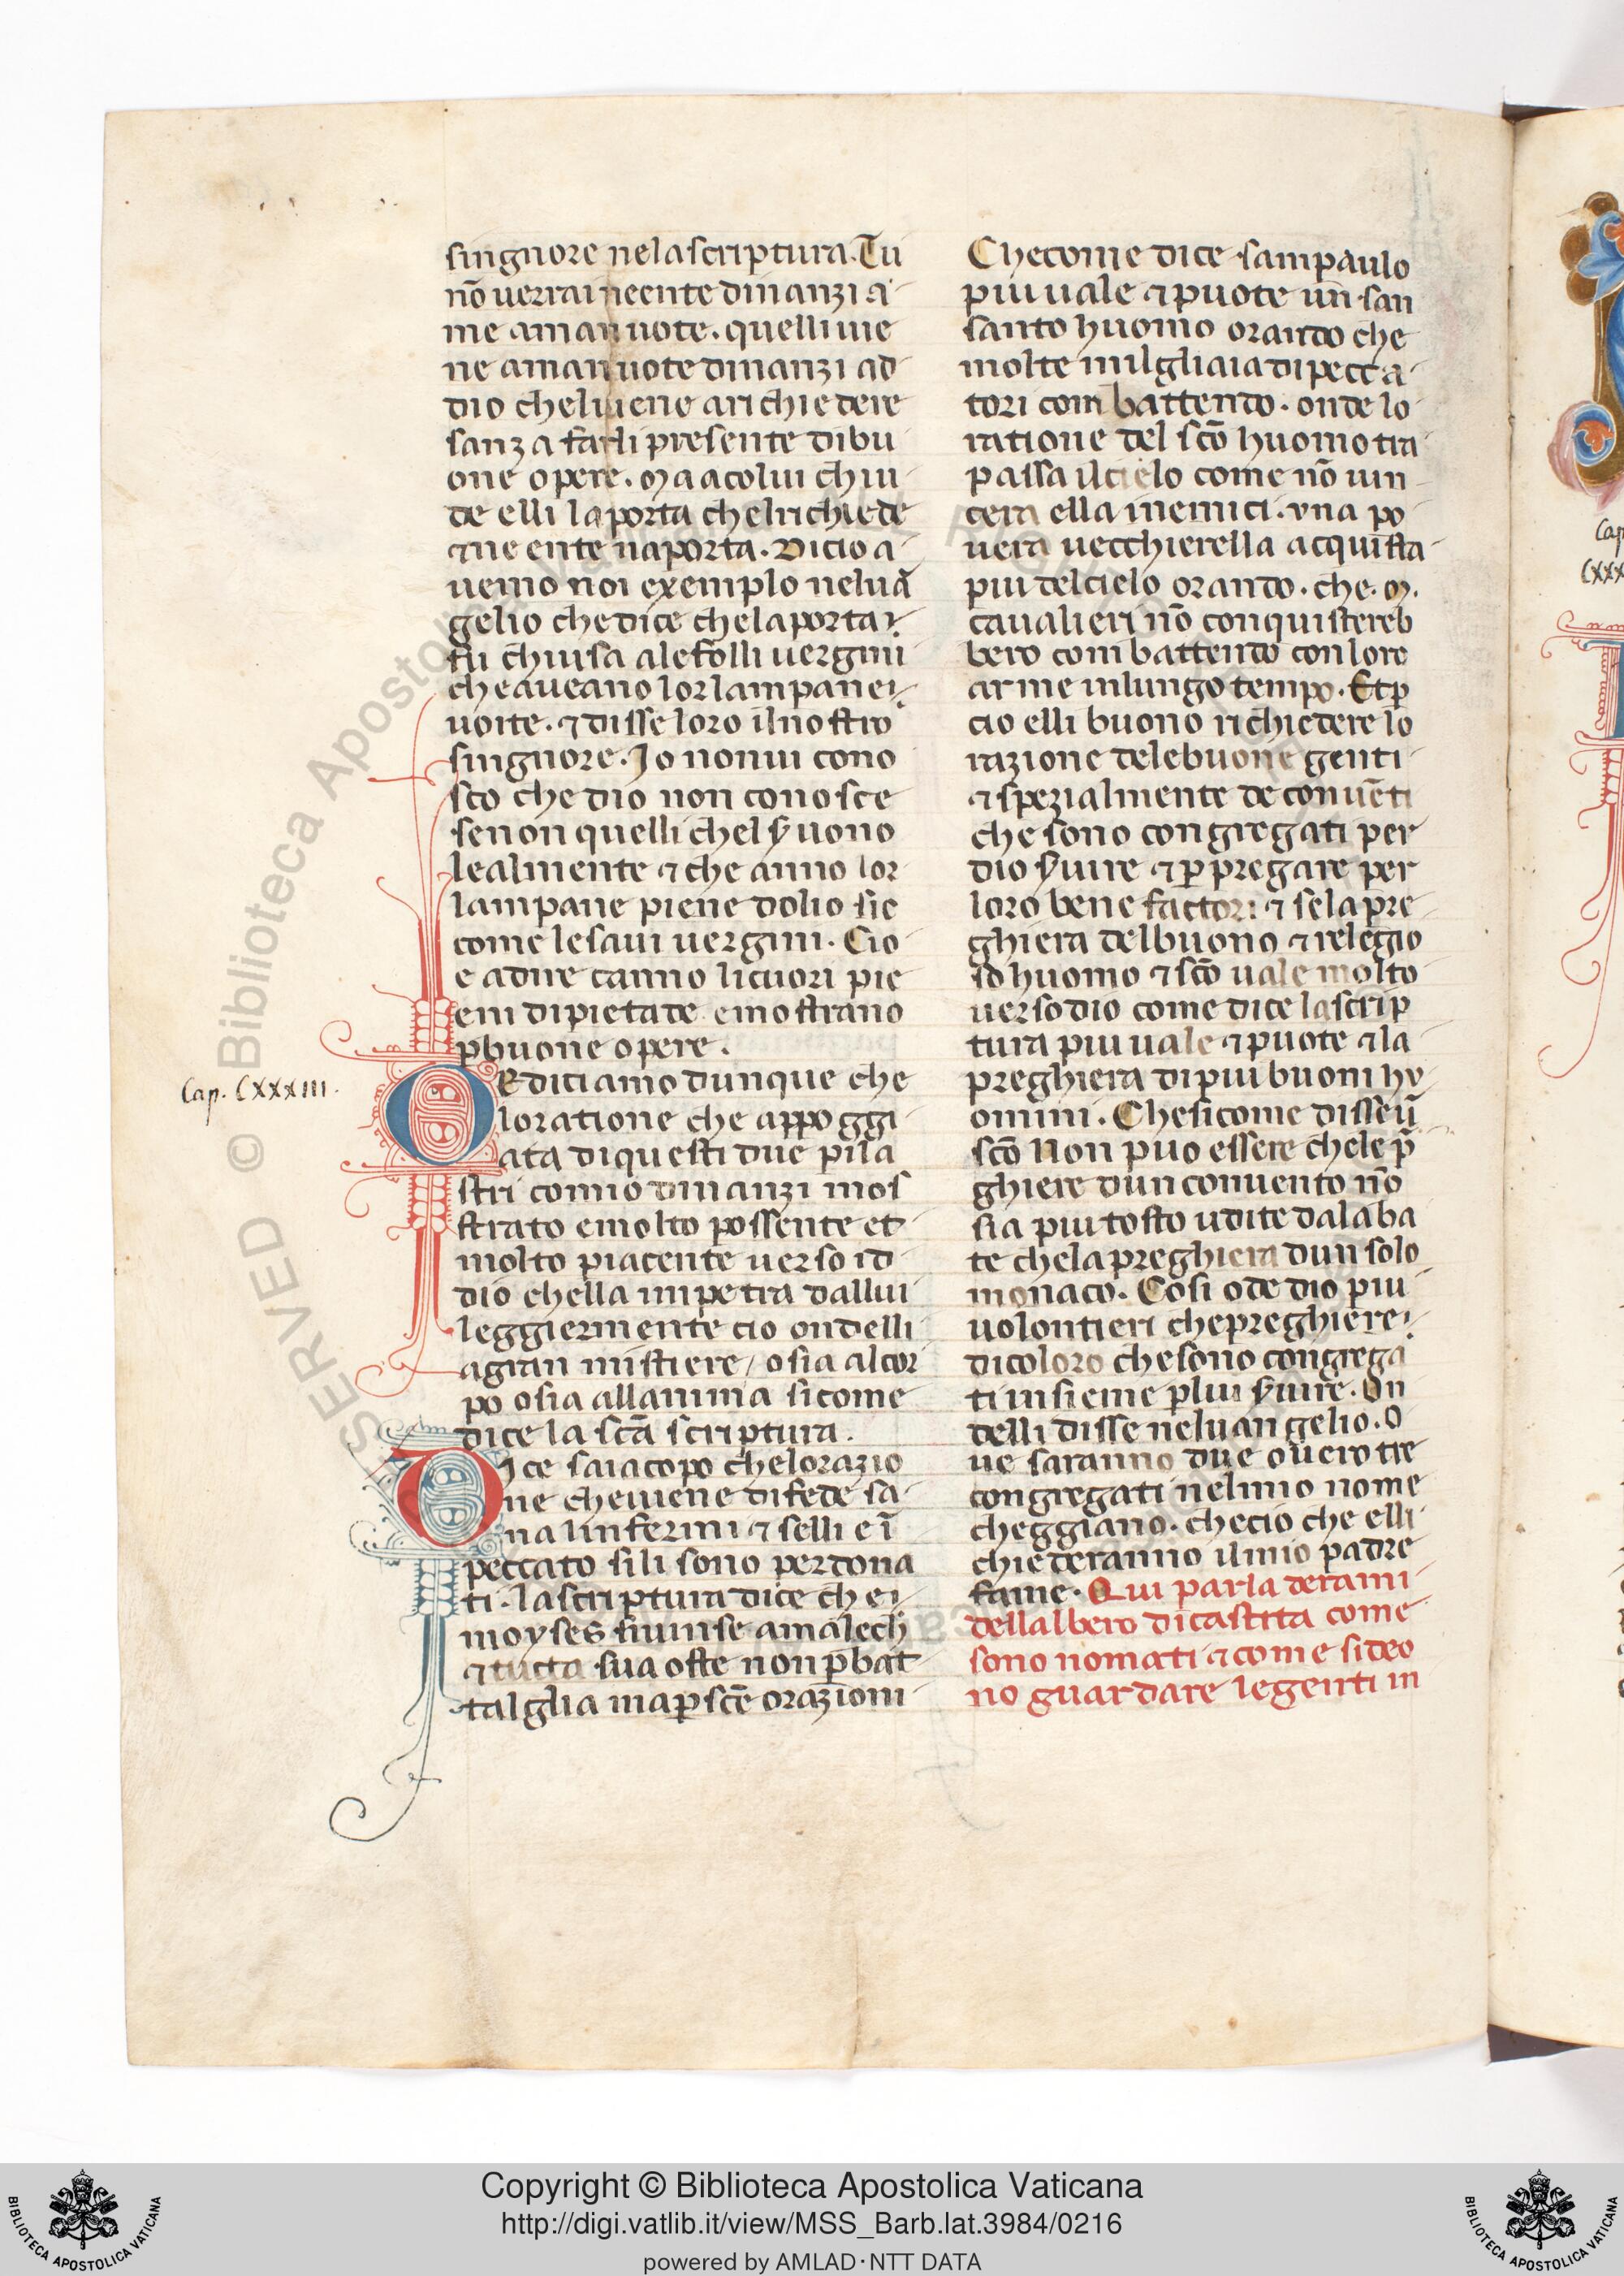 singnore nelascriptura. Tu
nō uerrai neente dinanzi a
me aman uote. quelli uie
ne aman uote dinanzi ad
dio chel uiene a richiedere
sanza farli presente di bu
one opere. Ma a colui chiu
de elli la porta chel richiede
⁊ neente na porta. Dicio a
uemo noi exemplo nel uā
gelio che dice che la porta
fu chiusa ale folli uergini
che aueano lor lampane
uoite. ⁊ disse loro il nostro
singnore. Io non ui cono
sco che dio non conosce
se non quelli chel s̄uono
lealmente ⁊ che anno lor
lampane piene dolio sic
come le saui uergini. Cio
e a dire canno li cuori pie
eni di pietate e mostrano
p buone opere.
Cap. CXXXIII.
Or diciamo dunque che
loratione che appoggi
ata di questi due pila
stri comio dinanzi mos
strato e molto possente et
molto piacente uerso id
dio chella impetra dallui
leggiermente cio ondelli
a gran mistiere, o sia al cor
po o sia allanima si come
dice la scā scriptura.
Dice sa iacopo che lorazio
ne che uiene di fede sa
na linfermi ⁊ selli e ī
peccato si li sono perdona
ti. la scriptura dice che
moyses uinse amalech
⁊ tucta sua oste non p bat
talglia ma p scē orazioni
Che come dice sampaulo
piu uale ⁊ puote un san
santo huomo orando che
molte milgliaia di pecca
tori combattendo. onde lo
ratione del scō huomo tra
passa il cielo come nō uin
cera ella i nemici. una po
uera uecchierella acquista
piu del cielo orando. che. M.
caualieri nō conquistereb
bero combattendo con loro
arme in lungo tempo. Et p
cio elli buono richiedere lo
razione dele buone genti
⁊ spezialmente de conuēti
che sono congregati per
dio s̄uire ⁊ p pregare per
loro bene factori ⁊ se la pre
ghiera del buono ⁊ relegio
so huomo ⁊ scō uale molto
uerso dio come dice la scrip
tura piu uale ⁊ puote ⁊ la
preghiera di piu buoni hu
omini. Che si come disse ū
scō Non puo essere che le p̄
ghiere dun conuento nō
sia piu tosto udite dalaba
te che la preghiera dun solo
monaco. Cosi ode dio piu
uolontieri che preghiere
di coloro che sono congrega
ti insieme p lui s̄uire. On
delli disse nel uangelio. O
ue saranno due ouero tre
congregati nel mio nome
cheggiano. che cio che elli
chiederanno il mio padre
faine. Qui parla de rami
dellalbero di castita come
sono nomati ⁊ come si deo
no guardare legenti in
Copyright © Biblioteca Apostolica Vaticana
http://digi.vatlib.it/view/MSS_Barb.lat.3984/0216
powered by AMLAD·NTT DATA